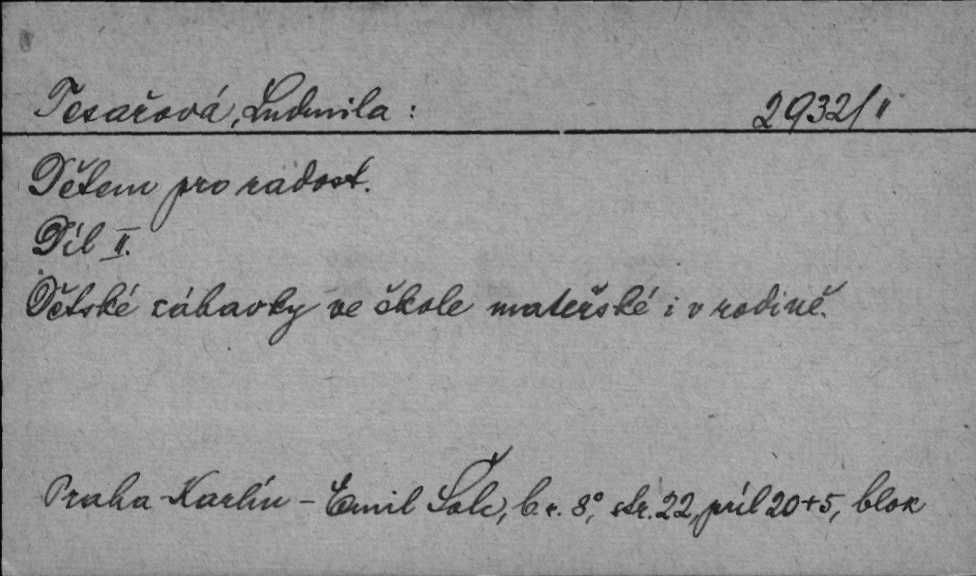 Tesařová, Ludmila: 2932/II
Dětem pro radost.
Díl II.
Dětské zábavky ve škole mateřské i v rodině.
Praha-Karlín - Emil Šolc, b.r. 8°, str. 22, příl 20+5, blok